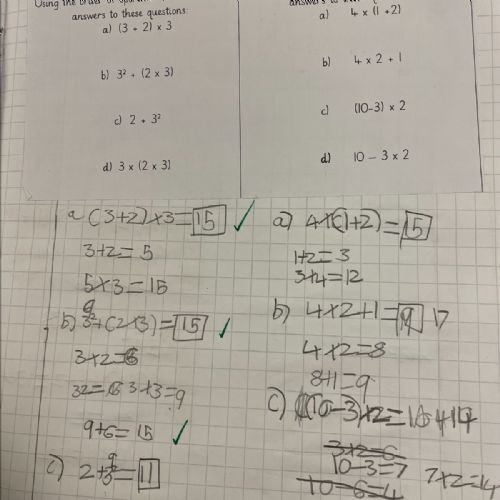 Using the order of
answers to these questions:
a) (3 + 2) × 3
b) 3² + (2 × 3)
c) 2 + 3²
d) 3 × (2 × 3)
a) 4 × (1 + 2)
b) 4 × 2 + 1
c) (10-3) × 2
d) 10 – 3 × 2
a (3+2)×3=15 ✓
3+2=5
5×3=15
9
b) 3²+(2×3)=15 ✓
3×2=6
32=6 3×3=9
9+6=15 ✓
9
c) 2+3²=11
a) 4×(1+2)=5
1+2=3
3×4=12
b) 4×2+1=9
4×2=8
8+1=9
c) (10-3)×2=
3×2=6
10-3=7 7×2=14
10-6=4